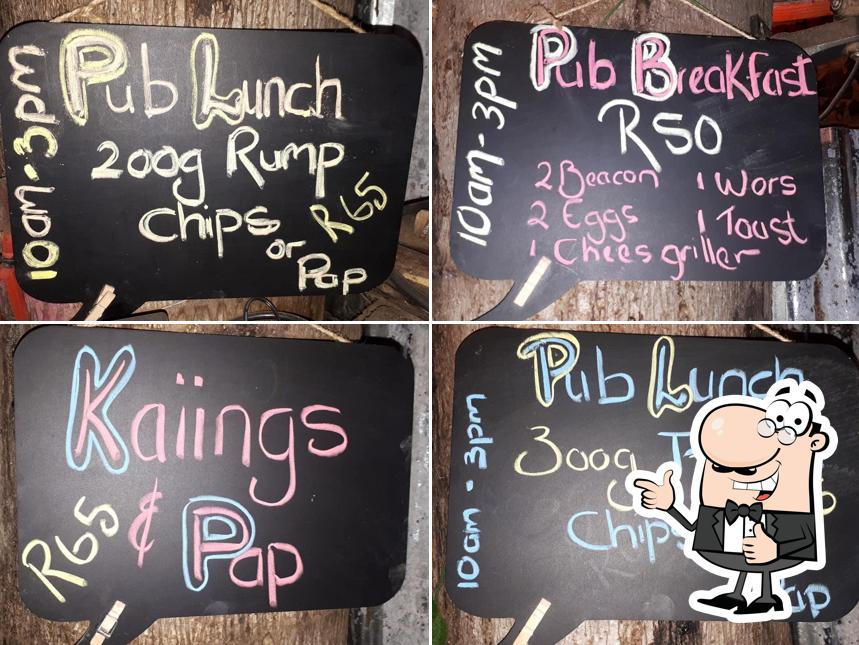 10am-3pm
Pub Lunch
200g Rump
Chips R65
or
Pap
10am-3pm
Pub Breakfast
R50
2 Beacon 1 Wors
2 Eggs 1 Toast
1 Chees griller
Kaiings
& Pap
R65
10am - 3pm
Pub Lunch
300g
Chips